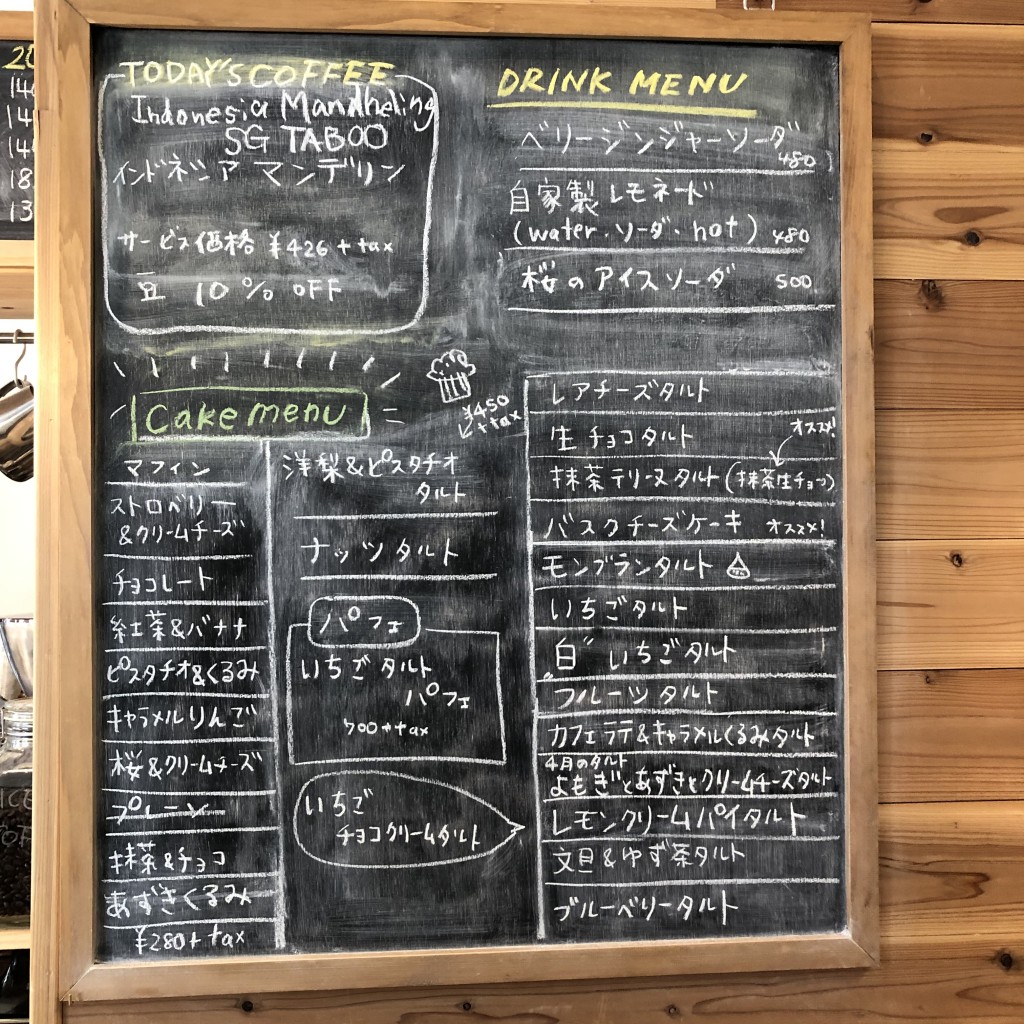 TODAY'S COFFEE
Indonesia Mandheling
SG TABOO
インドネシア マンデリン
サービス価格 ¥426+tax
豆 10% OFF
DRINK MENU
ベリージンジャーソーダ
480
自家製レモネード
(water・ソーダ・hot) 480
桜のアイスソーダ 500
Cake menu
¥450
+tax
マフィン
ストロベリー
&クリームチーズ
チョコレート
紅茶&バナナ
ピスタチオ&くるみ
キャラメルりんご
桜&クリームチーズ
プレーン
抹茶&チョコ
あずきくるみ
¥280+tax
洋梨&ピスタチオ
タルト
ナッツタルト
パフェ
いちごタルト
パフェ
700+tax
いちご
チョコクリームタルト
レアチーズタルト
生チョコタルト
オススメ!
抹茶テリーヌタルト(抹茶生チョコ)
バスクチーズケーキ オススメ!
モンブランタルト
いちごタルト
白いちごタルト
フルーツタルト
カフェラテ&キャラメルくるみタルト
4月のタルト
よもぎとあずきとクリームチーズタルト
レモンクリームパイタルト
文旦&ゆず茶タルト
ブルーベリータルト